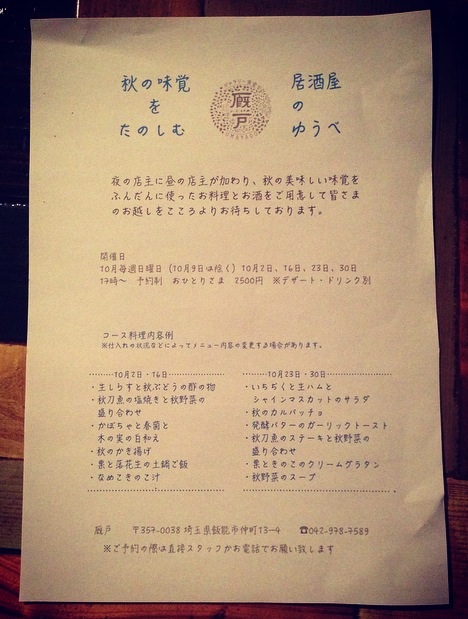 秋の味覚
を
たのしむ
厩戸
居酒屋
の
ゆうべ
夜の店主に昼の店主が加わり、秋の美味しい味覚を
ふんだんに使ったお料理とお酒をご用意して皆さま
のお越しをこころよりお待ちしております。
開催日
10月毎週日曜日 (10月9日は除く) 10月2日、16日、23日、30日
17時〜 予約制 おひとりさま 2500円 ※デザート・ドリンク別
コース料理内容例
※仕入れの状況などによってメニュー内容の変更する場合があります。
10月2日・16日
・生しらすと秋ぶどうの酢の物
・秋刀魚の塩焼きと秋野菜の
盛り合わせ
・かぼちゃと春菊と
木の実の白和え
・秋のかき揚げ
・栗と落花生の土鍋ご飯
・なめこきのこ汁
10月23日・30日
・いちぢくと生ハムと
シャインマスカットのサラダ
・秋のカルパッチョ
・発酵バターのガーリックトースト
・秋刀魚のステーキと秋野菜の
盛り合わせ
・栗ときのこのクリームグラタン
・秋野菜のスープ
厩戸 〒357-0038 埼玉県飯能市仲町13−4 ☎042-978-7589
※ご予約の際は直接スタッフかお電話でお願い致します